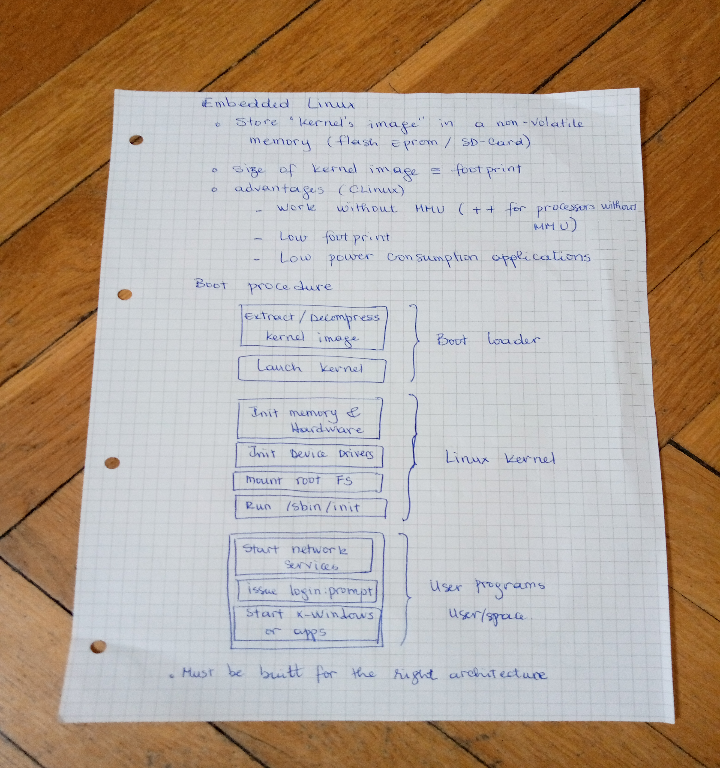 Embedded Linux
• Store "kernel's image" in a non-volatile
memory (flash Eprom / SD-Card)
• size of kernel image = footprint
• advantages (CLinux)
- Work without MMU (++ for processors without
MMU)
- Low footprint
- Low power consumption applications
Boot procedure
Extract/Decompress
kernel image
Lauch kernel
Boot loader
Init memory &
Hardware
Init Device Drivers
mount root FS
Run /sbin/init
Linux kernel
Start network
services
issue login:prompt
Start X-Windows
or apps
User programs
User/space
• Must be built for the right architecture